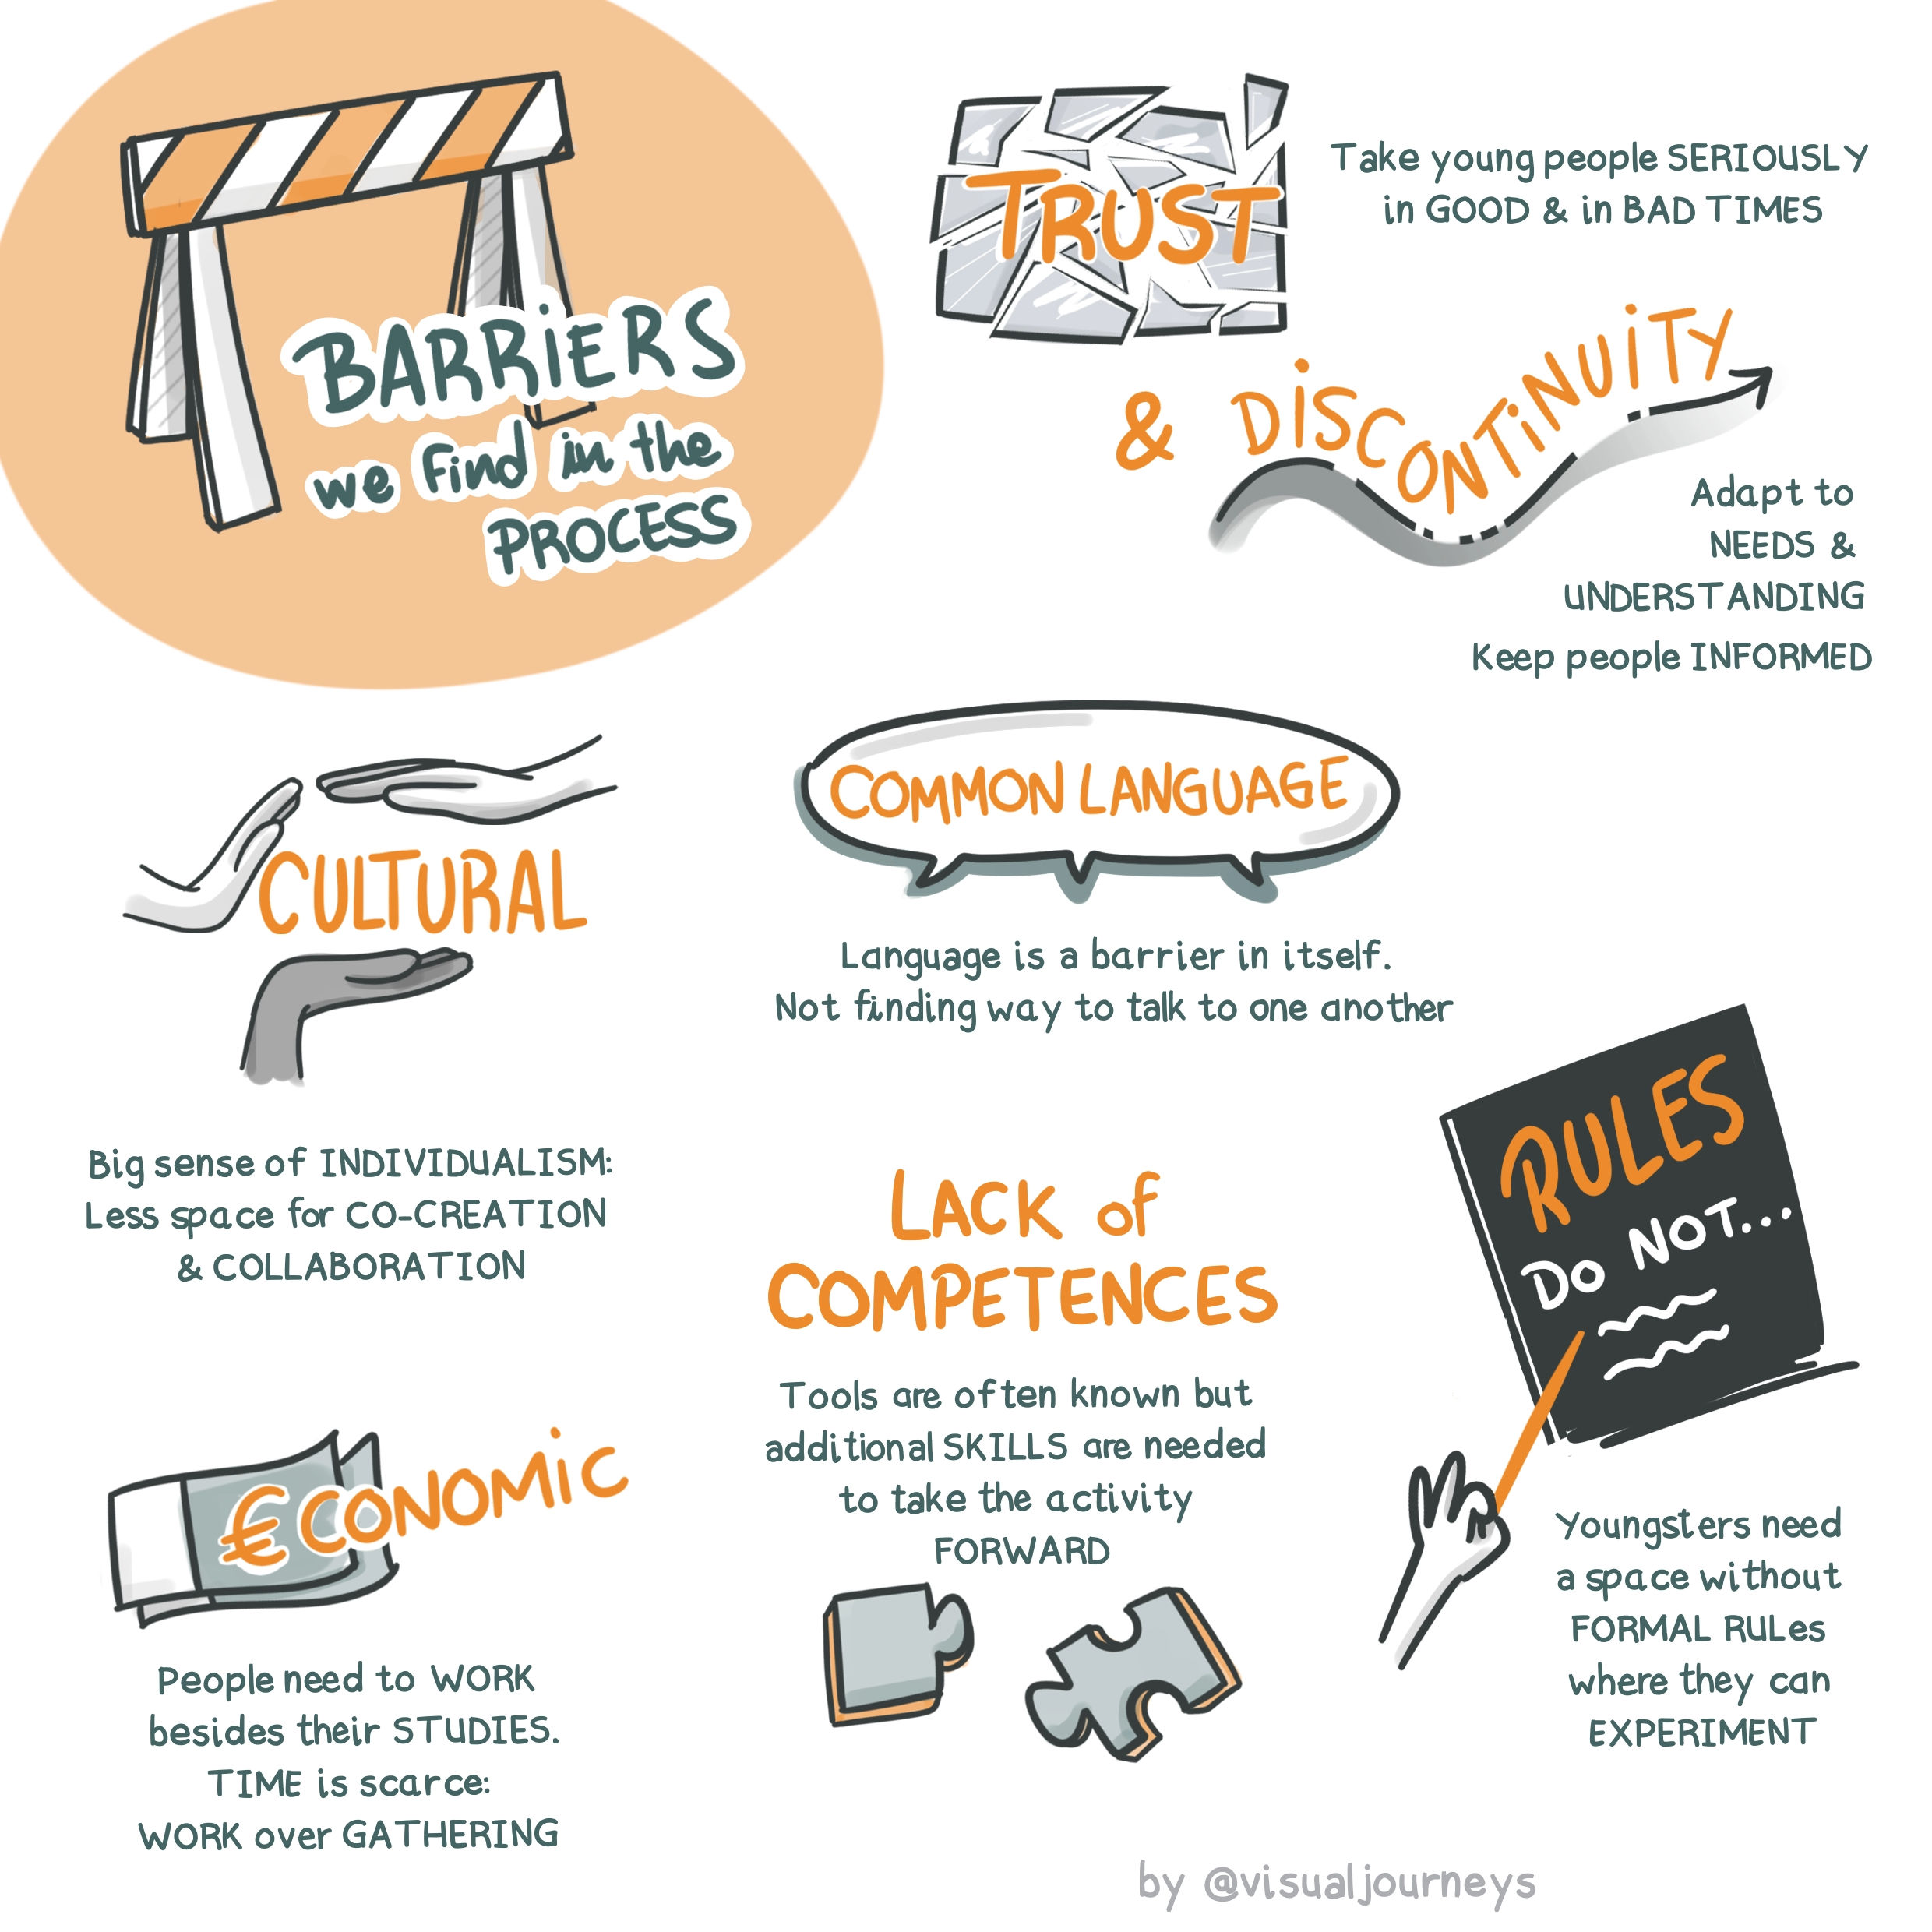 BARRiERS
we find in the
PROCESS
TRUST
Take young people SERIOUSLY
in GOOD & in BAD TIMES
& DiSCONTiNUiTY
Adapt to
NEEDS &
UNDERSTANDING
Keep people INFORMED
CULTURAL
Big sense of INDIVIDUALISM:
Less space for CO-CREATION
& COLLABORATION
COMMON LANGUAGE
Language is a barrier in itself.
Not finding way to talk to one another
LACK of
COMPETENCES
Tools are often known but
additional SKILLS are needed
to take the activity
FORWARD
RULES
Do NOT...
Youngsters need
a space without
FORMAL RULes
where they can
EXPERIMENT
€CONOMiC
People need to WORK
besides their STUDIES.
TIME is scarce:
WORK over GATHERING
by @visualjourneys